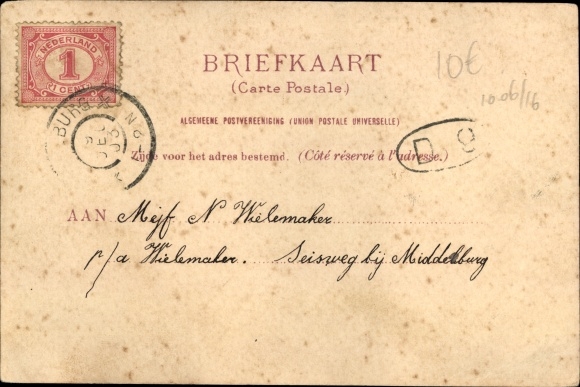 NEDERLAND
1
BRIEFKAART
(Carte Postale.)
10€
ALGEMEENE POSTVEREENIGING (UNION POSTALE UNIVERSELLE)
Zijde voor het adres bestemd. (Côté réservé à l'adresse.)
AAN Mejf N Wielemaker
p/a Wielemaker. Seisweg bij Middelburg